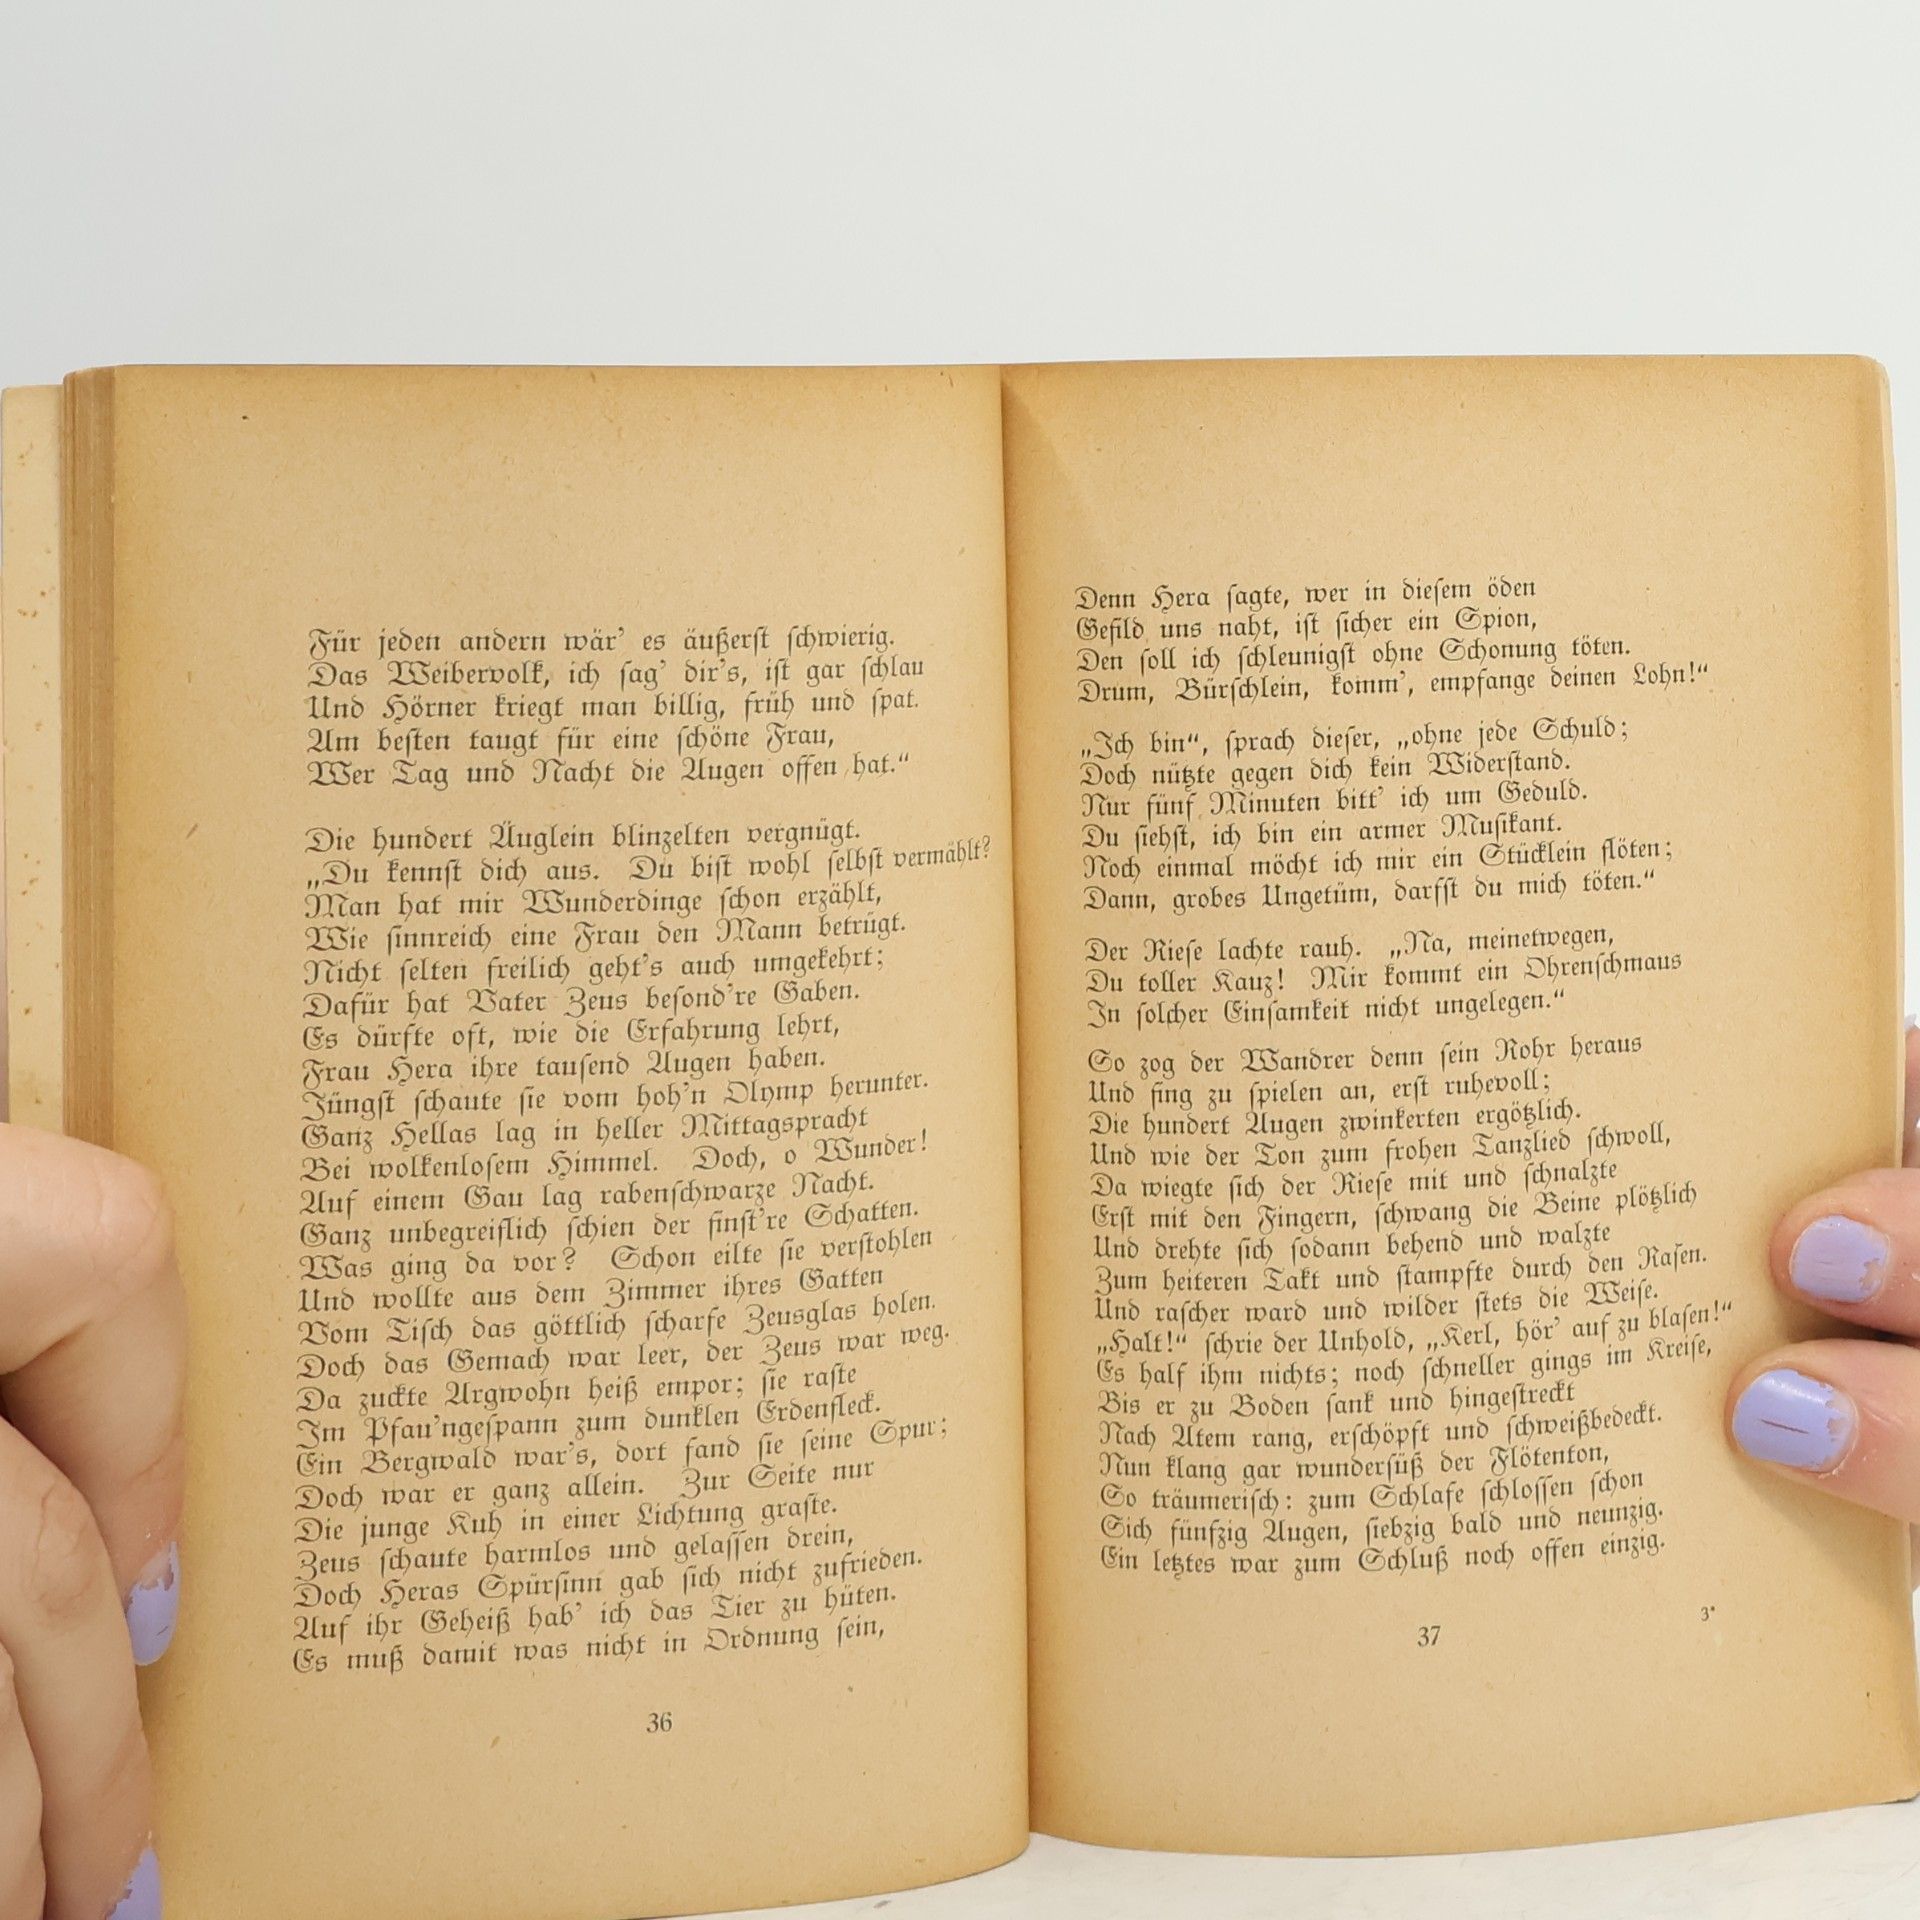 Für jeden andern wär' es äußerſt ſchwierig.
Das Weibervolk, ich ſag' dir's, iſt gar ſchlau
Und Hörner kriegt man billig, früh und ſpat.
Am beſten taugt für eine ſchöne Frau,
Wer Tag und Nacht die Augen offen hat.“
Die hundert Äuglein blinzelten vergnügt.
„Du kennſt dich aus. Du biſt wohl ſelbſt vermählt?
Man hat mir Wunderdinge ſchon erzählt,
Wie ſinnreich eine Frau den Mann betrügt.
Nicht ſelten freilich geht's auch umgekehrt;
Dafür hat Vater Zeus beſond're Gaben.
Es dürfte oft, wie die Erfahrung lehrt,
Frau Hera ihre tauſend Augen haben.
Jüngſt ſchaute ſie vom hoh'n Olymp herunter.
Ganz Hellas lag in heller Mittagspracht
Bei wolkenloſem Himmel. Doch, o Wunder!
Auf einem Gau lag rabenſchwarze Nacht.
Ganz unbegreiflich ſchien der finſt're Schatten.
Was ging da vor? Schon eilte ſie verſtohlen
Und wollte aus dem Zimmer ihres Gatten
Vom Tiſch das göttlich ſcharfe Zeusglas holen.
Doch das Gemach war leer, der Zeus war weg.
Da zuckte Argwohn heiß empor; ſie raſte
Im Pfau'ngeſpann zum dunklen Erdenfleck.
Ein Bergwald war's, dort fand ſie ſeine Spur;
Doch war er ganz allein. Zur Seite nur
Die junge Kuh in einer Lichtung graſte.
Zeus ſchaute harmlos und gelaſſen drein,
Doch Heras Spürſinn gab ſich nicht zufrieden.
Auf ihr Geheiß hab' ich das Tier zu hüten.
Es muß damit was nicht in Ordnung ſein,
36
Denn Hera ſagte, wer in dieſem öden
Gefild uns naht, iſt ſicher ein Spion,
Den ſoll ich ſchleunigſt ohne Schonung töten.
Drum, Bürſchlein, komm', empfange deinen Lohn!“
„Ich bin“, ſprach dieſer, „ohne jede Schuld;
Doch nützte gegen dich kein Widerſtand.
Nur fünf Minuten bitt' ich um Geduld.
Du ſiehſt, ich bin ein armer Muſikant.
Noch einmal möcht ich mir ein Stücklein flöten;
Dann, grobes Ungetüm, darfſt du mich töten.“
Der Rieſe lachte rauh. „Na, meinetwegen,
Du toller Kauz! Mir kommt ein Ohrenſchmaus
In ſolcher Einſamkeit nicht ungelegen.“
So zog der Wandrer denn ſein Rohr heraus
Und fing zu ſpielen an, erſt ruhevoll;
Die hundert Augen zwinkerten ergötzlich.
Und wie der Ton zum frohen Tanzlied ſchwoll,
Da wiegte ſich der Rieſe mit und ſchnalzte
Erſt mit den Fingern, ſchwang die Beine plötzlich
Und drehte ſich ſodann behend und walzte
Zum heiteren Takt und ſtampfte durch den Raſen.
Und raſcher ward und wilder ſtets die Weiſe.
„Halt!“ ſchrie der Unhold, „Kerl, hör' auf zu blaſen!“
Es half ihm nichts; noch ſchneller gings im Kreiſe,
Bis er zu Boden ſank und hingeſtreckt
Nach Atem rang, erſchöpft und ſchweißbedeckt.
Nun klang gar wunderſüß der Flötenton,
So träumeriſch: zum Schlafe ſchloſſen ſchon
Sich fünfzig Augen, ſiebzig bald und neunzig.
Ein letztes war zum Schluß noch offen einzig.
3*
37